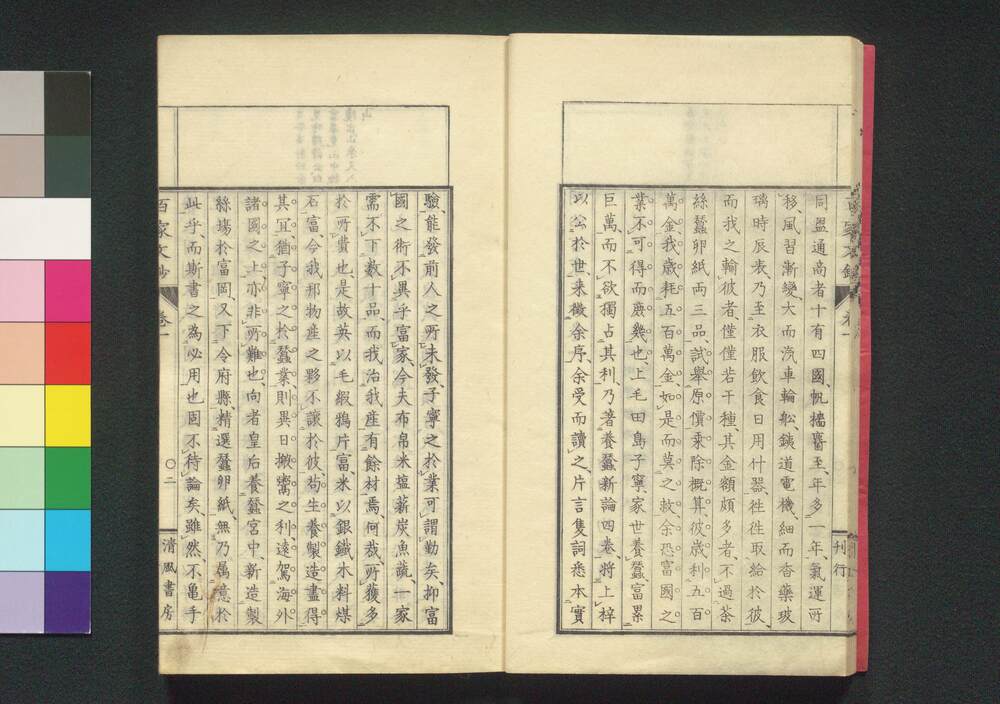 同盟通商者十有四國、帆檣麕至、年多一年、氣運所
移、風習漸變、大而汽車輪舩、鐵道電機、細而香藥玻
璃時辰表乃至衣服飲食日用什器、徃徃取給於彼、
而我之輸彼者、僅僅若干種、其金額頗多者、不過茶
絲蠶卵紙両三品、試舉原價乗除概算、彼歳利五百
萬金、我歳耗五百萬金、如是而莫之救、余恐富國之
業不可得而庶幾也、上毛田島子寧、家世養蠶、富累
巨萬、而不欲獨占其利、乃著養蠶新論四卷、將上梓
以公於世、来徴余序、余受而讀之、片言隻詞悉本實
刊行
驗、能發前人之所未發、子寧之於業可謂勤矣、抑富
國之術、不異乎富家、今夫布帛米塩薪炭魚蔬、一家
需不下數十品、而我治我産、有餘材焉、何哉、所獲多
於所費也、是故英以毛緞鴉片富、米以銀鐵木料煤
石富、今我邦物産之夥、不讓於彼、苟生養製造盡得
其冝、猶子寧之於蠶業、則異日搬鬻之利、遠駕海外
諸國之上、亦非所難也、向者皇后養蠶宮中、新造製
絲塲於富岡、又下令府縣、精選蠶卵紙、無乃属意於
此乎、而斯書之為必用也、固不待論矣、雖然、不亀手
百家文鈔
卷一
〇二
清風書房